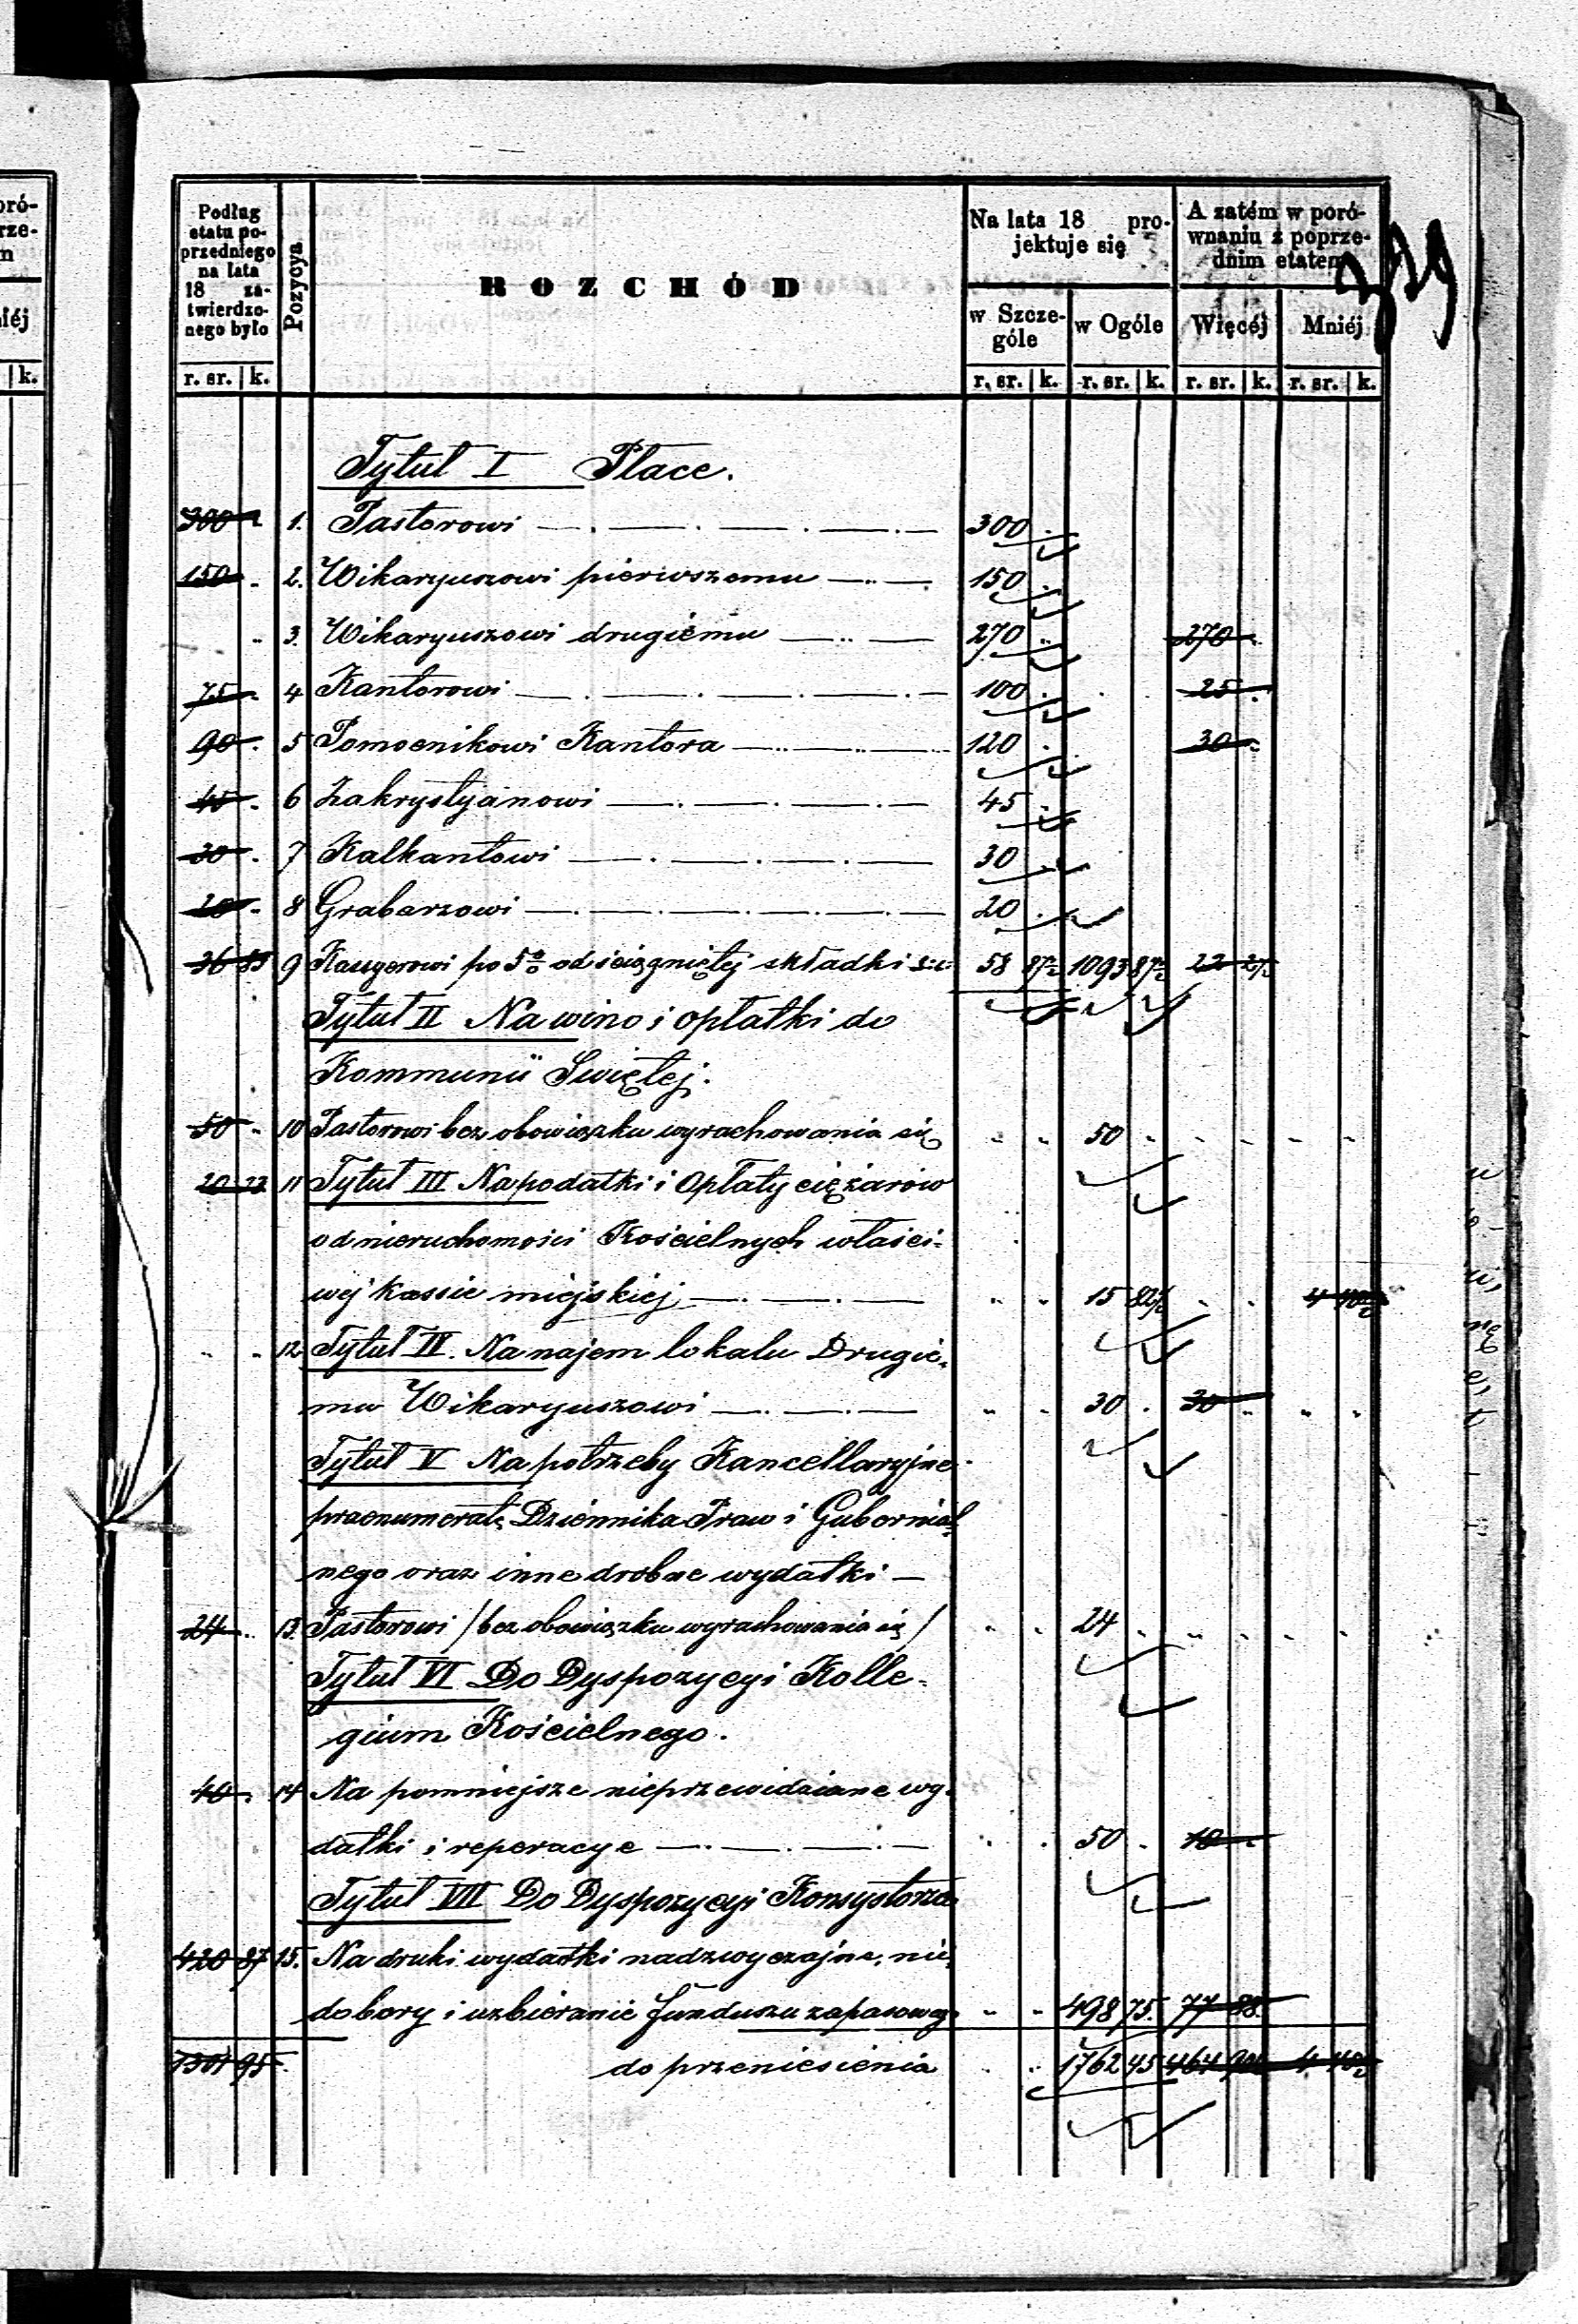 329
Podług etatu poprzedniego na lata 18 zatwierdzonego było
Pozycya
ROZCHÓD
Na lata 18 projektuje się
A zatém w porównaniu z poprzednim etatem
w Szczególe
w Ogóle
Więcéj
Mniéj
r. sr. k. r. sr. k. r. sr. k. r. sr. k. r. sr. k.
Tytuł I Płace.
300 1. Pastorowi 300
150 2. Wikaryuszowi pierwszemu 150
3. Wikaryuszowi drugiemu 270 270
75 4 Kantorowi 100 25
90 5 Pomocnikowi Kantora 120 30
45 6 Zakrystyanowi 45
30 7 Kalkantowi 30
20 8 Grabarzowi 20
36 85 9 po 5% od ściągniętej składki 58 87½ 1093 87½ 22 2½
Tytuł II Na wino i opłatki do
Kommunii Świętej.
50 10 Pastorowi bez obowiązku wyrachowania się 50
20 23 11 Tytuł III Na podatki i Opłaty ciężarów
od nieruchomości Kościelnych właści-
wej Kassie miejskiej 15 82½ 4 40½
12 Tytuł IV. Na najem lokalu Drugie-
mu Wikaryuszowi 30 30
Tytuł V Na potrzeby Kancellaryjne
praenumeratę Dziennika Praw i Gubernial-
nego oraz inne drobne wydatki
24 13. Pastorowi / bez obowiązku wyrachowania się / 24
Tytuł VI Do Dyspozycyi Kolle-
gium Kościelnego.
40 14 Na pomniejsze nieprzewidziane wy-
datki i reperacye 50 10
Tytuł VII Do Dyspozycyi Konsystorza
420 87 15. Na druki wydatki nadzwyczajne, nie-
dobory i uzbieranie funduszu zapasoweg 498 75 77 88
1301 95 do przeniesienia 1762 45 464 90½ 4 40½